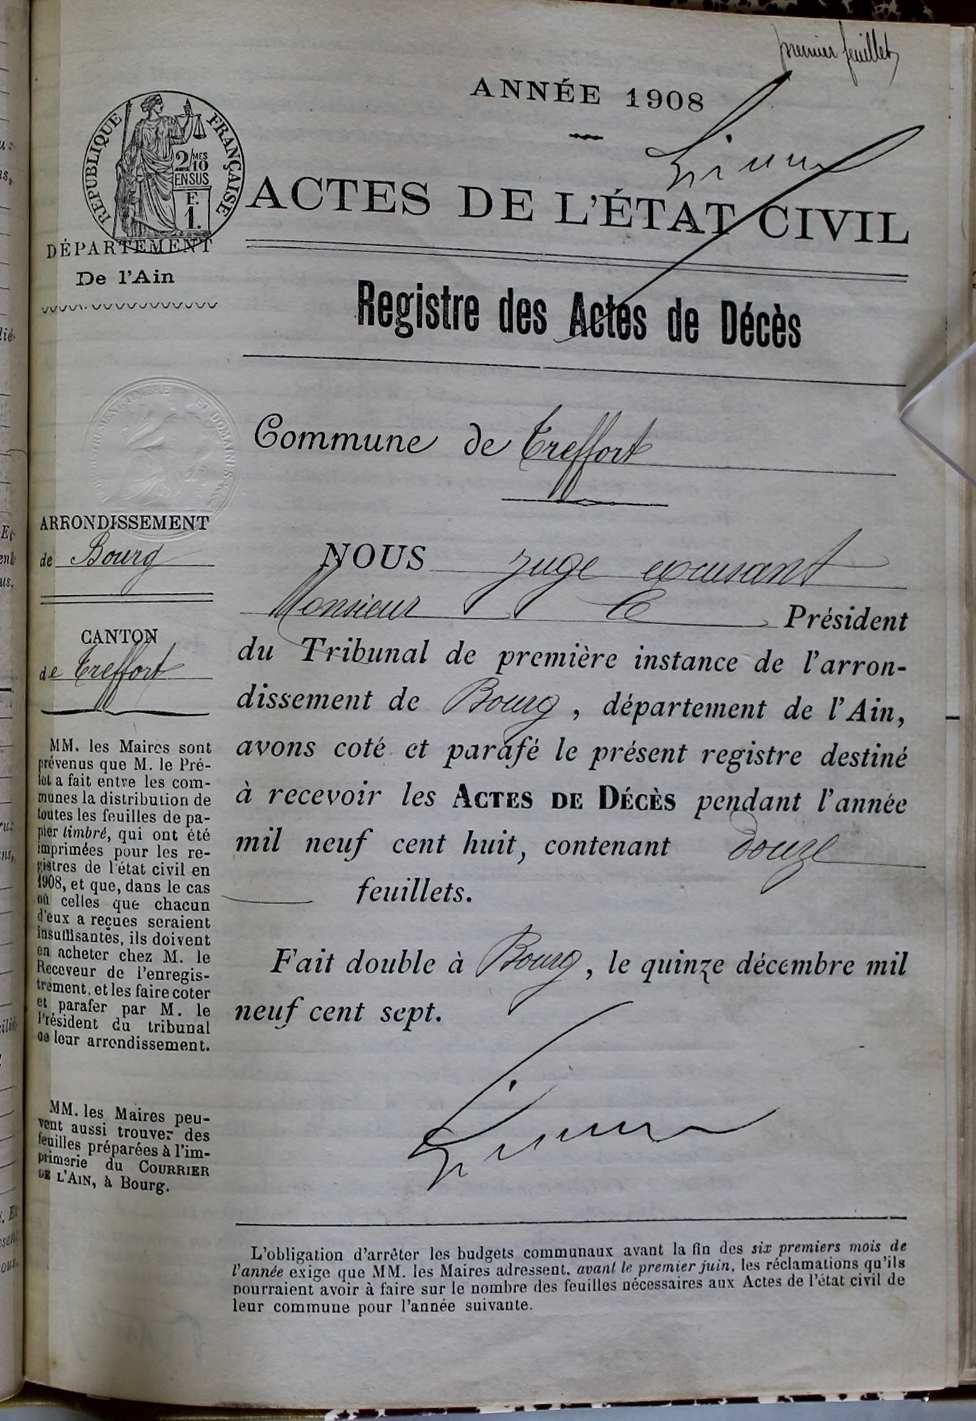 premier feuillet
ANNÉE 1908
RÉPUBLIQUE FRANÇAISE
2/MES
10
EN SUS
F.
1.
ACTES DE L'ÉTAT CIVIL
DÉPARTEMENT
De l'Ain
Registre des Actes de Décès
Commune de Treffort
ARRONDISSEMENT
de Bourg
CANTON
de Treffort
MM. les Maires sont
prévenus que M. le Pré-
fet a fait entre les com-
munes la distribution de
toutes les feuilles de pa-
pier timbré, qui ont été
imprimées pour les re-
gistres de l'état civil en
1908, et que, dans le cas
où celles que chacun
d'eux a reçues seraient
insuffisantes, ils doivent
en acheter chez M. le
Receveur de l'enregis-
trement, et les faire coter
et parafer par M. le
Président du tribunal
de leur arrondissement.
MM. les Maires peu-
vent aussi trouver des
feuilles préparées à l'im-
primerie du COURRIER
DE L'AIN, à Bourg.
NOUS juge excusant
Monsieur le Président
du Tribunal de première instance de l'arron-
dissement de Bourg, département de l'Ain,
avons coté et parafé le présent registre destiné
à recevoir les ACTES DE DÉCÈS pendant l'année
mil neuf cent huit, contenant douze
feuillets.
Fait double à Bourg, le quinze décembre mil
neuf cent sept.
L'obligation d'arrêter les budgets communaux avant la fin des six premiers mois de
l'année exige que MM. les Maires adressent, avant le premier juin, les réclamations qu'ils
pourraient avoir à faire sur le nombre des feuilles nécessaires aux Actes de l'état civil de
leur commune pour l'année suivante.